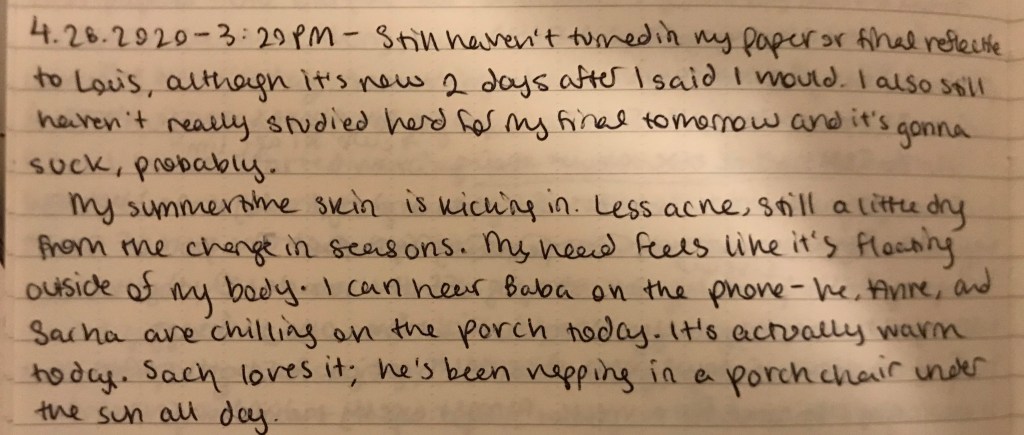 4.28.2020 - 3:29PM - Still haven't turned in my paper or final reflectie
to Louis, although it's now 2 days after I said I would. I also still
haven't really studied hard for my final tomorrow and it's gonna
suck, probably.
My summertime skin is kicking in. Less acne, still a little dry
from the change in seasons. My head feels like it's floating
outside of my body. I can hear Baba on the phone - he, Anne, and
Sacha are chilling on the porch today. It's actually warm
today. Sach loves it; he's been napping in a porch chair under
the sun all day.